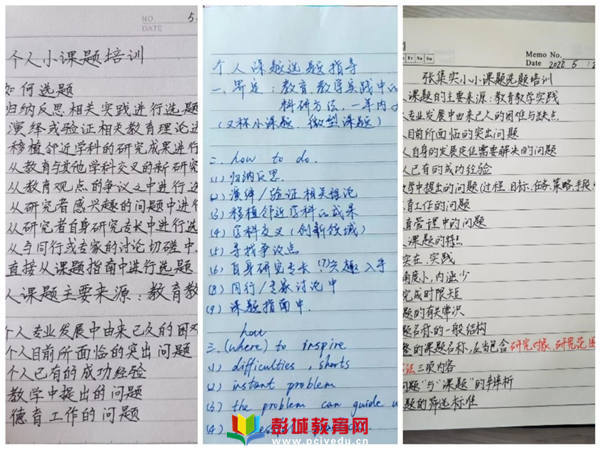 NO.
DATE
个人小课题培训
如何选题
归纳反思相关实践进行选题
演绎或验证相关教育理论进
移植邻近学科的研究成果进行
从教育与其他学科交叉的新研究
从教育观点的争议之中进行选
从研究者感兴趣的问题中进行
从研究者自身研究专长中进行
从与同行或专家的讨论切磋中
直接从课题指南中进行选题
人课题主要来源:教育教
个人专业发展中由来已久的困
个人目前所面临的突出问题
个人已有的成功经验
教学中提出的问题
德育工作的问题
个人课题选题指导
一.界定:教育教学实践中
科研方法,一年内
(又称小课题、微型课题)
二. how to do.
(1) 归纳反思.
(2) 演绎/验证相关理论
(3) 移植邻近学科的成果
(4) 学科交叉(创新领域)
(5) 寻找争议点
(6) 自身研究专长 (7)兴趣入手
(8) 同行/专家讨论中
(9) 课题指南中.
how
三.(where) to inspire
(1) difficulties, shorts
(2) instant problem
(3) the problem can guide
(4)
Memo No.
Date
张集实小小课题选题培训
课题的主要来源:教育教学实践
专业发展中由来已久的困难与疑点
目前所面临的突出问题
人自身的发展定位需要解决的问题
人已有的成功经验
教学中提出的问题(过程、目标、任务、策略、手段
育工作的问题
管理中的问题
课题的特点
实在,实践
角度小,内涵少
完成时限短
题的有关常识
题名称的一般结构
整的课题名称,应当包含研究对象、研究范围
法三项内容
问题"与"课题"的辨析
题的筛选标准
彭城教育网
www.pcivedu.cn